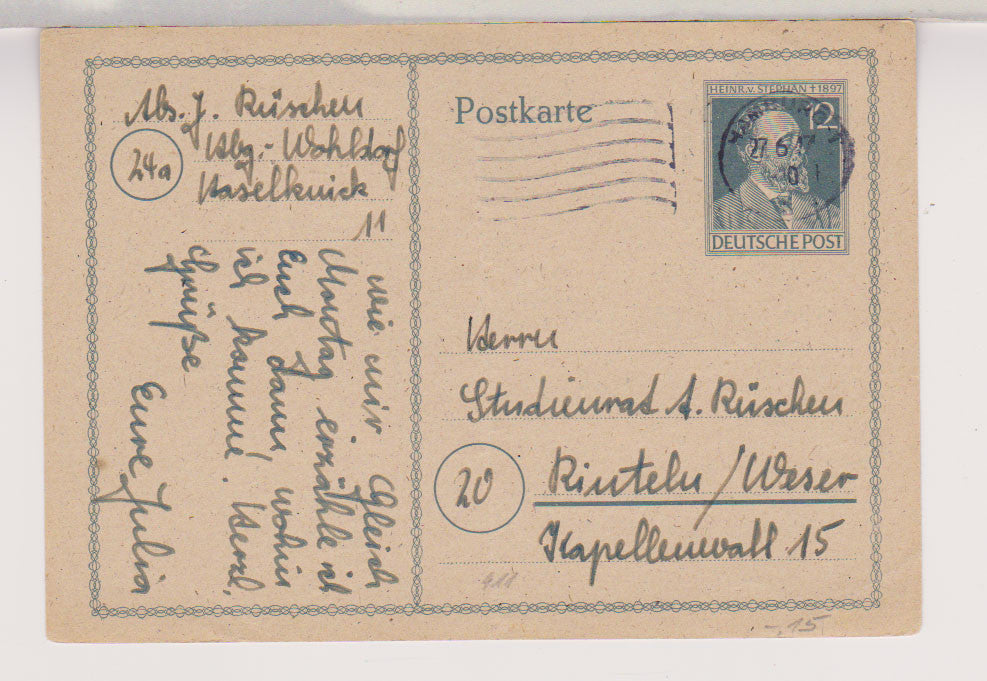 Abs. J. Rüschen
Hbg.-Wohldorf
24a
Haselknick
11
wie mir. Gleich
Montag erzähle ich
Euch dann, wohin
ich komme. Herzl.
Grüße
Eure Julia
Postkarte
HEINR.v. STEPHAN † 1897
12
27.6.47
DEUTSCHE POST
Herrn
Studienrat A. Rüschen
20
Rinteln/Weser
Kapellenwall 15
-,15